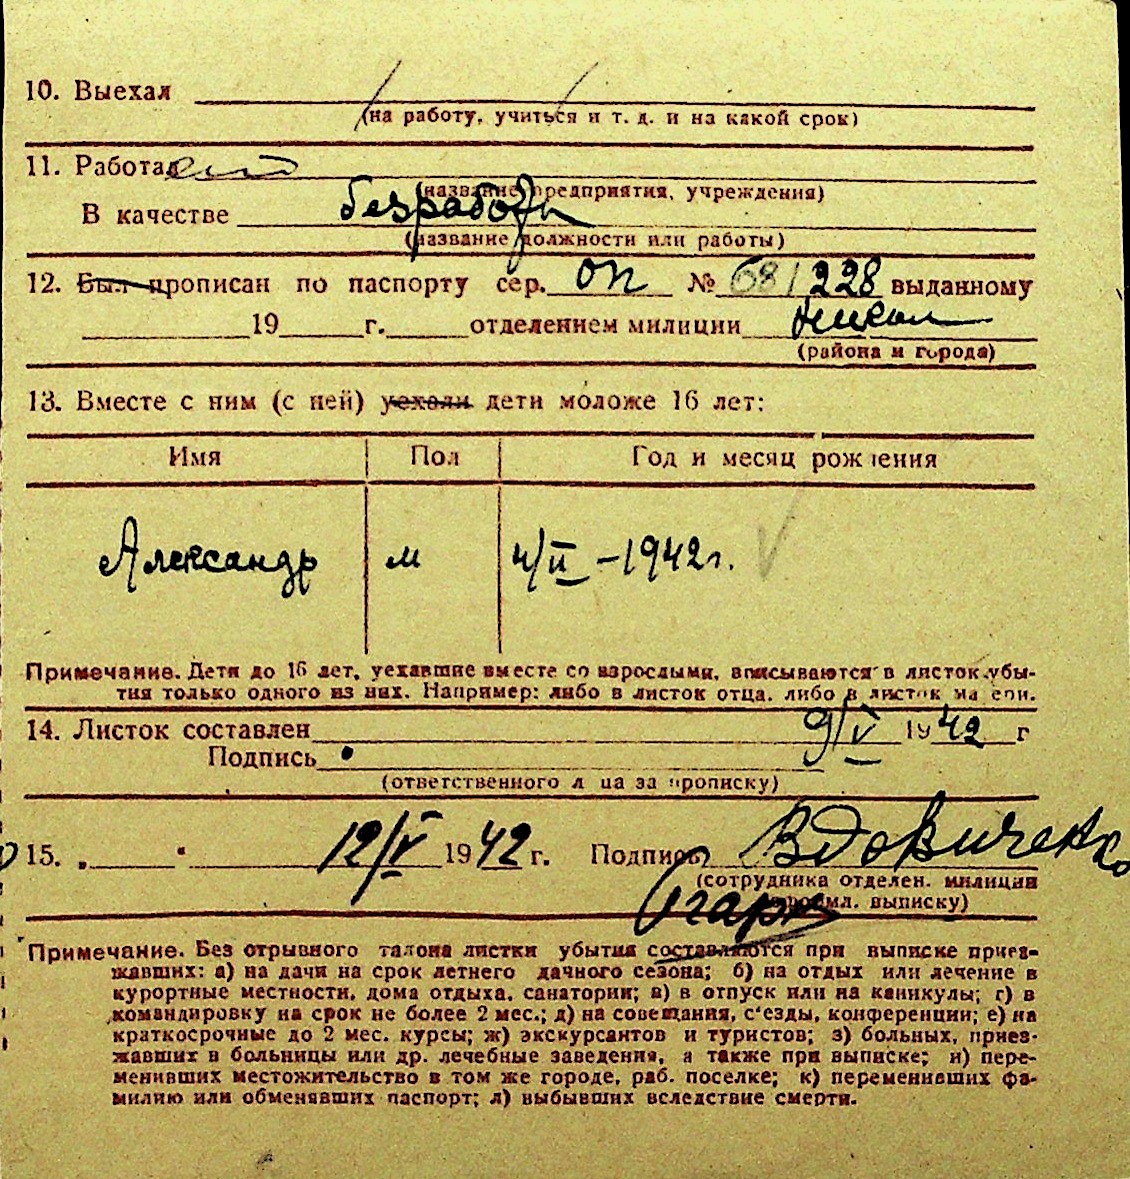 10. Выехал
(на работу, учиться и т. д. и на какой срок)
11. Работал
(название предприятия, учреждения)
В качестве безработн
(название должности или работы)
12. Был прописан по паспорту сер. ОП № 681228 выданному
19 г. отделением милиции
(района и города)
13. Вместе с ним (с ней) уехали дети моложе 16 лет:
Имя Пол Год и месяц рождения
Александр м 4/II – 1942 г.
Примечание. Дети до 16 лет, уехавшие вместе со взрослыми, вписываются в листок убы-
тия только одного из них. Например: либо в листок отца, либо в листок матери.
14. Листок составлен 9/V 1942 г
Подпись
(ответственного лица за прописку)
15. 12/V 1942 г. Подпись Вдовиченко
(сотрудника отделен. милиции
оформл. выписку)
Огарк
Примечание. Без отрывного талона листки убытия составляются при выписке приез-
жавших: а) на дачи на срок летнего дачного сезона; б) на отдых или лечение в
курортные местности, дома отдыха, санатории; в) в отпуск или на каникулы; г) в
командировку на срок не более 2 мес.; д) на совещания, с'езды, конференции; е) на
краткосрочные до 2 мес. курсы; ж) экскурсантов и туристов; з) больных, приез-
жавших в больницы или др. лечебные заведения, а также при выписке; и) пере-
менивших местожительство в том же городе, раб. поселке; к) переменивших фа-
милию или обменявших паспорт; л) выбывших вследствие смерти.